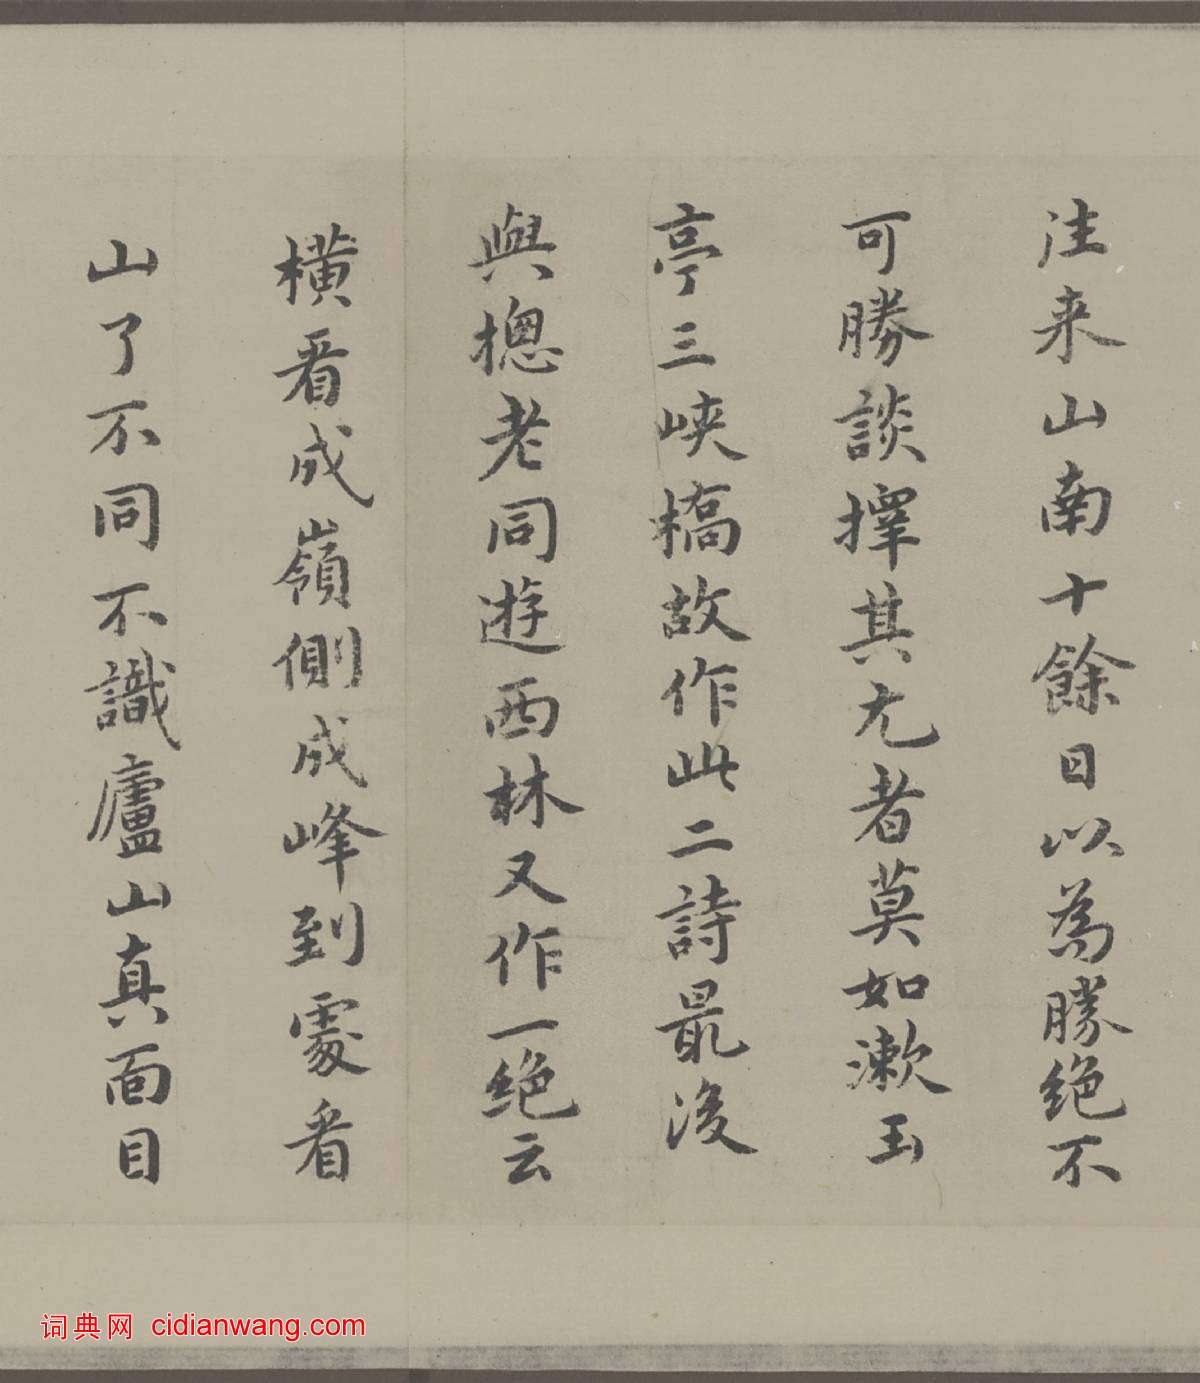 往来山南十餘日以為勝絶不
可勝談擇其尤者莫如漱玉
亭三峽橋故作此二詩最後
與摠老同遊西林又作一絶云
橫看成嶺側成峰到處看
山了不同不識廬山真面目
词典网 cidianwang.com